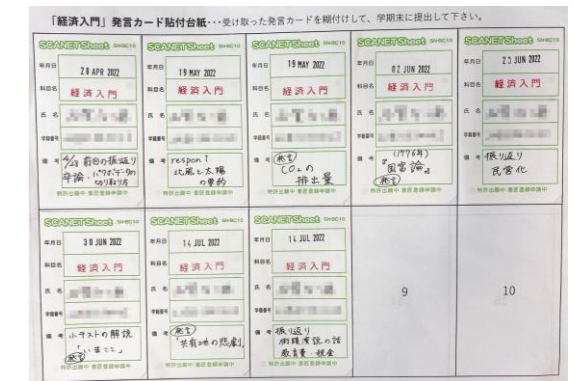 「経済入門」発言カード貼付台紙・・・受け取った発言カードを糊付けして、学期末に提出して下さい。
SCANETSheet SMHBC10
年月日 28 APR 2022
科目名 経済入門
氏名
学籍番号
備考 4/28 前回の振返り
卒論、パワポデータの
切り取り方
特許出願中 意匠登録申請中
SCANETSheet SMHBC10
年月日 19 MAY 2022
科目名 経済入門
氏名
学籍番号
備考 respon 1
北風と太陽
の要約
特許出願中 意匠登録申請中
SCANETSheet SMHBC10
年月日 19 MAY 2022
科目名 経済入門
氏名
学籍番号
備考 発言
CO2の
排出量
特許出願中 意匠登録申請中
SCANETSheet SMHBC10
年月日 02 JUN 2022
科目名 経済入門
氏名
学籍番号
備考 (1776年)
『国富論』
発言
特許出願中 意匠登録申請中
SCANETSheet SMHBC10
年月日 23 JUN 2022
科目名 経済入門
氏名
学籍番号
備考 振り返り
民営化
特許出願中 意匠登録申請中
SCANETSheet SMHBC10
年月日 30 JUN 2022
科目名 経済入門
氏名
学籍番号
備考 小テストの解説
「いまここ」
発言
特許出願中 意匠登録申請中
SCANETSheet SMHBC10
年月日 14 JUL 2022
科目名 経済入門
氏名
学籍番号
備考 発言
「共有地の悲劇」
特許出願中 意匠登録申請中
SCANETSheet SMHBC10
年月日 14 JUL 2022
科目名 経済入門
氏名
学籍番号
備考 振り返り
街頭演説の話
教育費・税金
特許出願中 意匠登録申請中
9
10